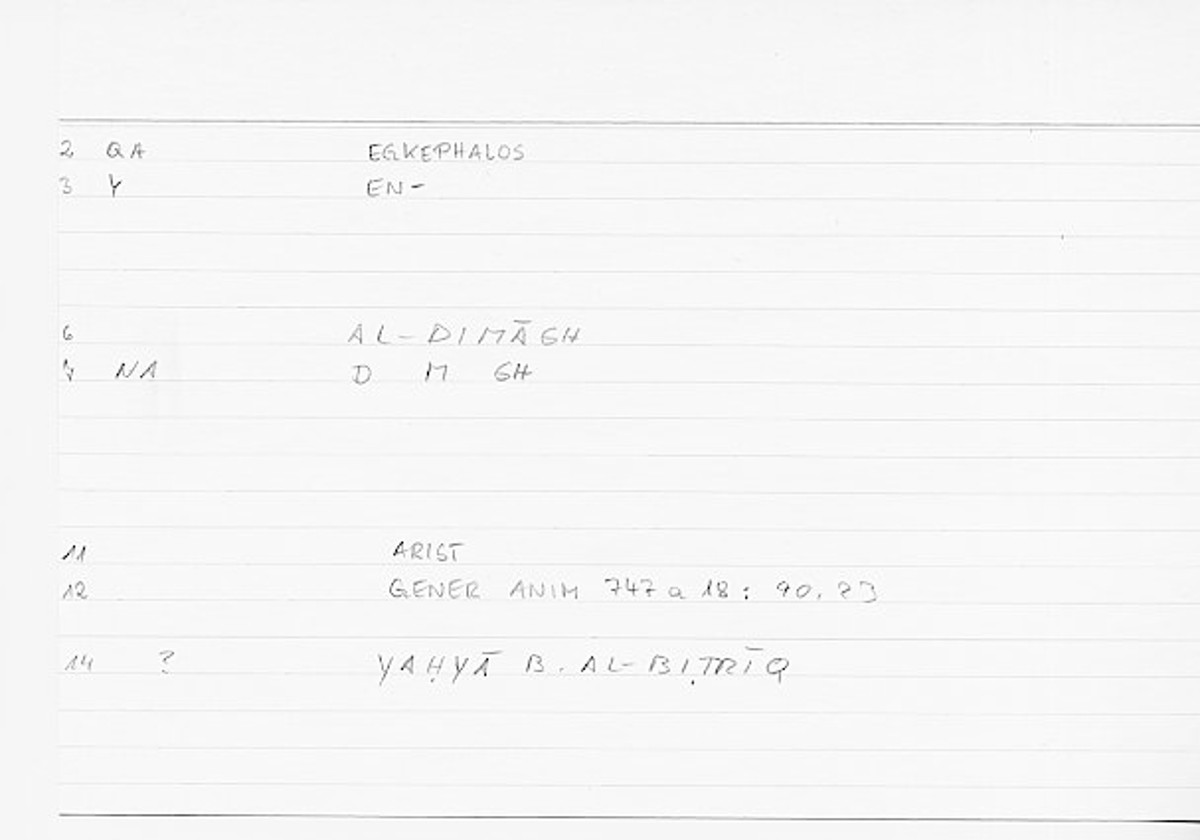 2 QA EGKEPHALOS
3 Y EN-
6 AL-DIMĀGH
7 NA D M GH
11 ARIST
12 GENER ANIM 747 a 18: 90.23
14 ? YAḤYĀ B. AL-BIṬRĪQ